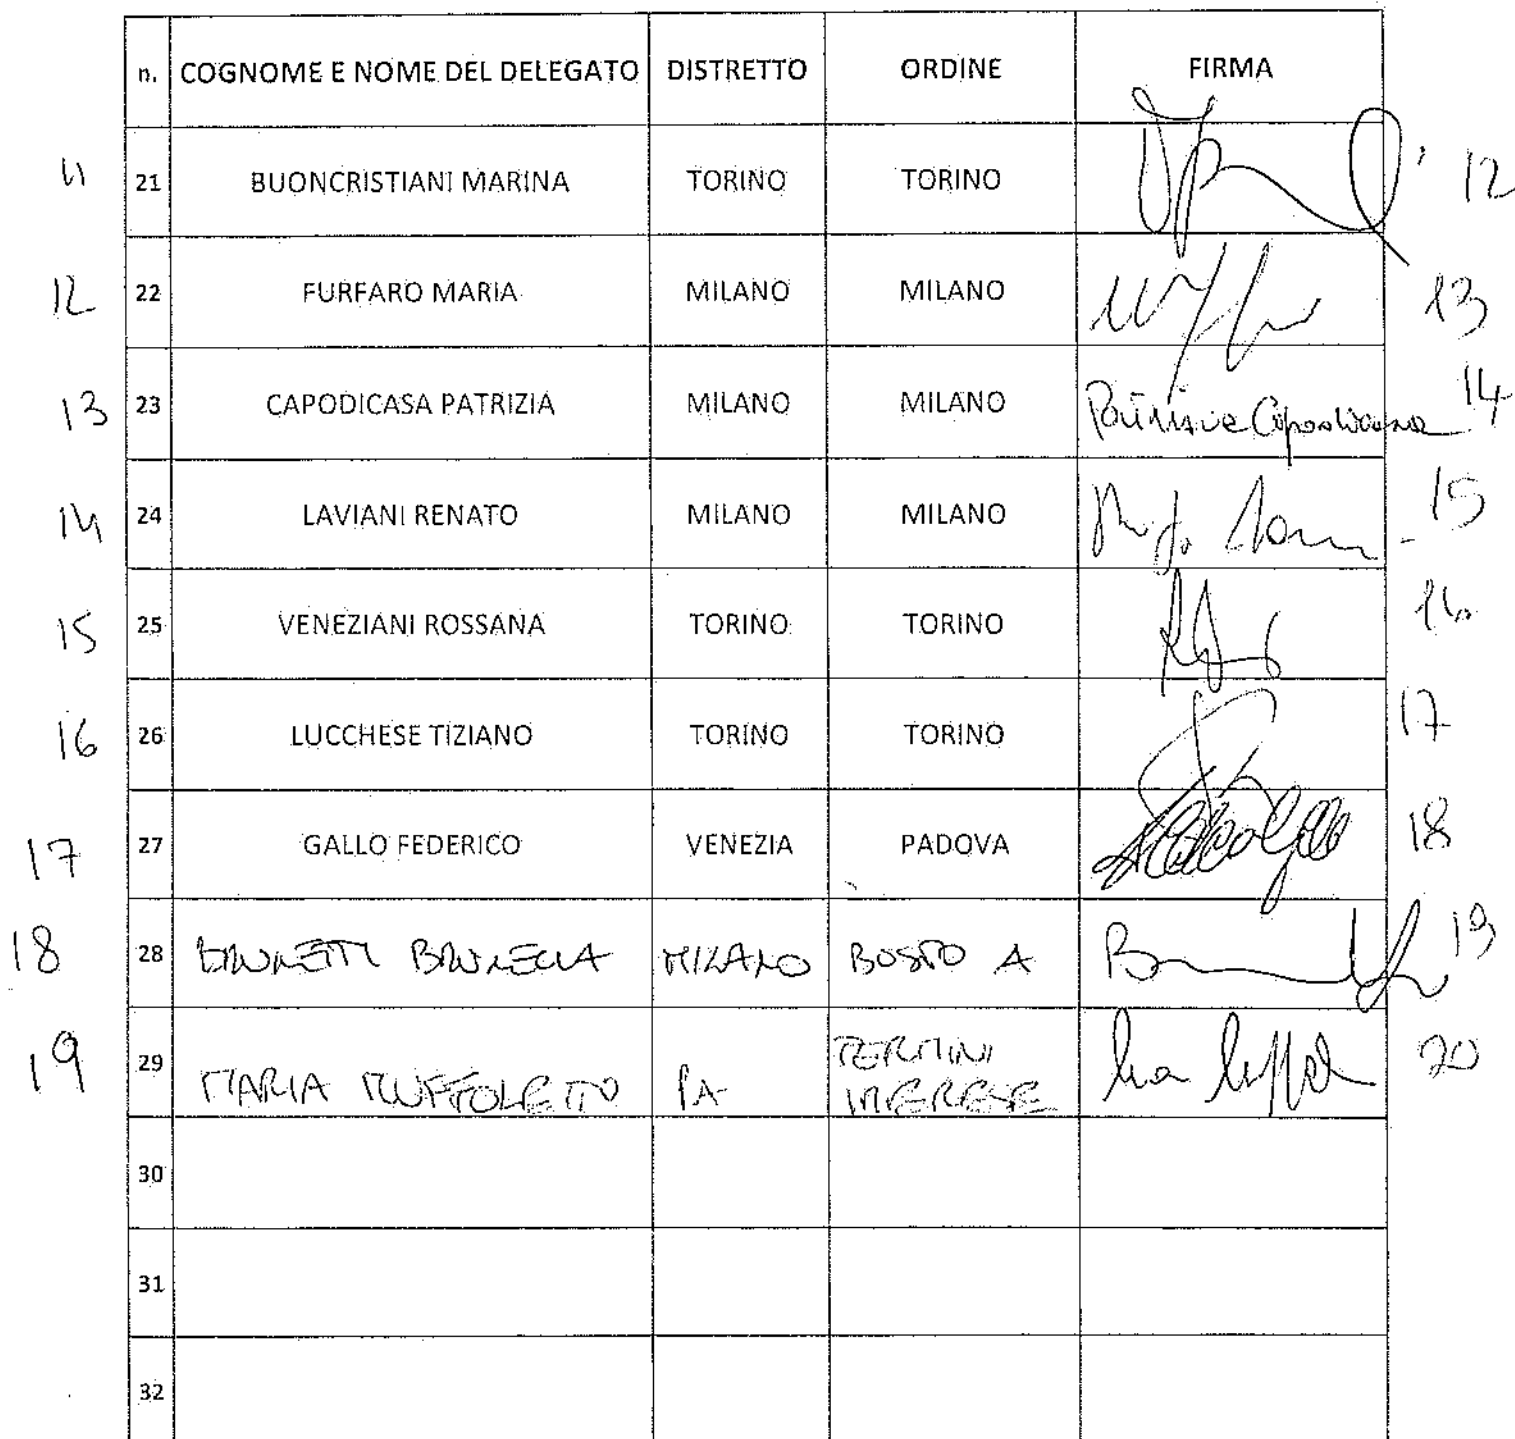 n. COGNOME E NOME DEL DELEGATO DISTRETTO ORDINE FIRMA
11 21 BUONCRISTIANI MARINA TORINO TORINO 12
12 22 FURFARO MARIA MILANO MILANO 13
13 23 CAPODICASA PATRIZIA MILANO MILANO Patrizia Capodicasa 14
14 24 LAVIANI RENATO MILANO MILANO 15
15 25 VENEZIANI ROSSANA TORINO TORINO 16
16 26 LUCCHESE TIZIANO TORINO TORINO 17
17 27 GALLO FEDERICO VENEZIA PADOVA 18
18 28 BRUNETTI BRUNELLA MILANO BUSTO A 19
19 29 MARIA MUFFOLETTO PA TERMINI
IMERESE 20
30
31
32